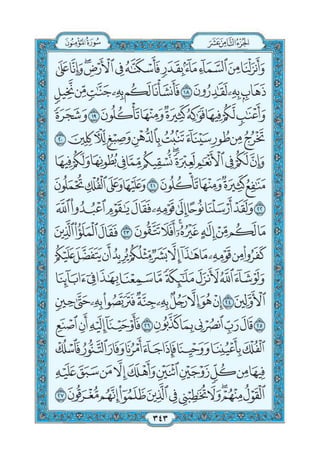 الجزء الثامن عشر
سورة المؤمنون
وَأَنزَلْنَا مِنَ ٱلسَّمَآءِ مَآءًۢ بِقَدَرٍ فَأَسْكَنَّٰهُ فِى ٱلْأَرْضِ ۖ وَإِنَّا عَلَىٰ
ذَهَابٍۭ بِهِۦ لَقَٰدِرُونَ ١٨ فَأَنشَأْنَا لَكُم بِهِۦ جَنَّٰتٍ مِّن نَّخِيلٍ
وَأَعْنَٰبٍ لَّكُمْ فِيهَا فَوَٰكِهُ كَثِيرَةٌ وَمِنْهَا تَأْكُلُونَ ١٩ وَشَجَرَةً
تَخْرُجُ مِن طُورِ سَيْنَآءَ تَنۢبُتُ بِٱلدُّهْنِ وَصِبْغٍ لِّلْءَاكِلِينَ ٢٠
وَإِنَّ لَكُمْ فِى ٱلْأَنْعَٰمِ لَعِبْرَةً ۖ نُّسْقِيكُم مِّمَّا فِى بُطُونِهَا وَلَكُمْ فِيهَا
مَنَٰفِعُ كَثِيرَةٌ وَمِنْهَا تَأْكُلُونَ ٢١ وَعَلَيْهَا وَعَلَى ٱلْفُلْكِ تُحْمَلُونَ
٢٢ وَلَقَدْ أَرْسَلْنَا نُوحًا إِلَىٰ قَوْمِهِۦ فَقَالَ يَٰقَوْمِ ٱعْبُدُوا۟ ٱللَّهَ
مَا لَكُم مِّنْ إِلَٰهٍ غَيْرُهُۥٓ ۖ أَفَلَا تَتَّقُونَ ٢٣ فَقَالَ ٱلْمَلَؤُا۟ ٱلَّذِينَ
كَفَرُوا۟ مِن قَوْمِهِۦ مَا هَٰذَآ إِلَّا بَشَرٌ مِّثْلُكُمْ يُرِيدُ أَن يَتَفَضَّلَ عَلَيْكُمْ
وَلَوْ شَآءَ ٱللَّهُ لَأَنزَلَ مَلَٰٓئِكَةً مَّا سَمِعْنَا بِهَٰذَا فِىٓ ءَابَآئِنَا
ٱلْأَوَّلِينَ ٢٤ إِنْ هُوَ إِلَّا رَجُلٌۢ بِهِۦ جِنَّةٌ فَتَرَبَّصُوا۟ بِهِۦ حَتَّىٰ حِينٍ
٢٥ قَالَ رَبِّ ٱنصُرْنِى بِمَا كَذَّبُونِ ٢٦ فَأَوْحَيْنَآ إِلَيْهِ أَنِ ٱصْنَعِ
ٱلْفُلْكَ بِأَعْيُنِنَا وَوَحْيِنَا فَإِذَا جَآءَ أَمْرُنَا وَفَارَ ٱلتَّنُّورُ ۙ فَٱسْلُكْ
فِيهَا مِن كُلٍّ زَوْجَيْنِ ٱثْنَيْنِ وَأَهْلَكَ إِلَّا مَن سَبَقَ عَلَيْهِ
ٱلْقَوْلُ مِنْهُمْ ۖ وَلَا تُخَٰطِبْنِى فِى ٱلَّذِينَ ظَلَمُوٓا۟ ۖ إِنَّهُم مُّغْرَقُونَ ٢٧
٣٤٣